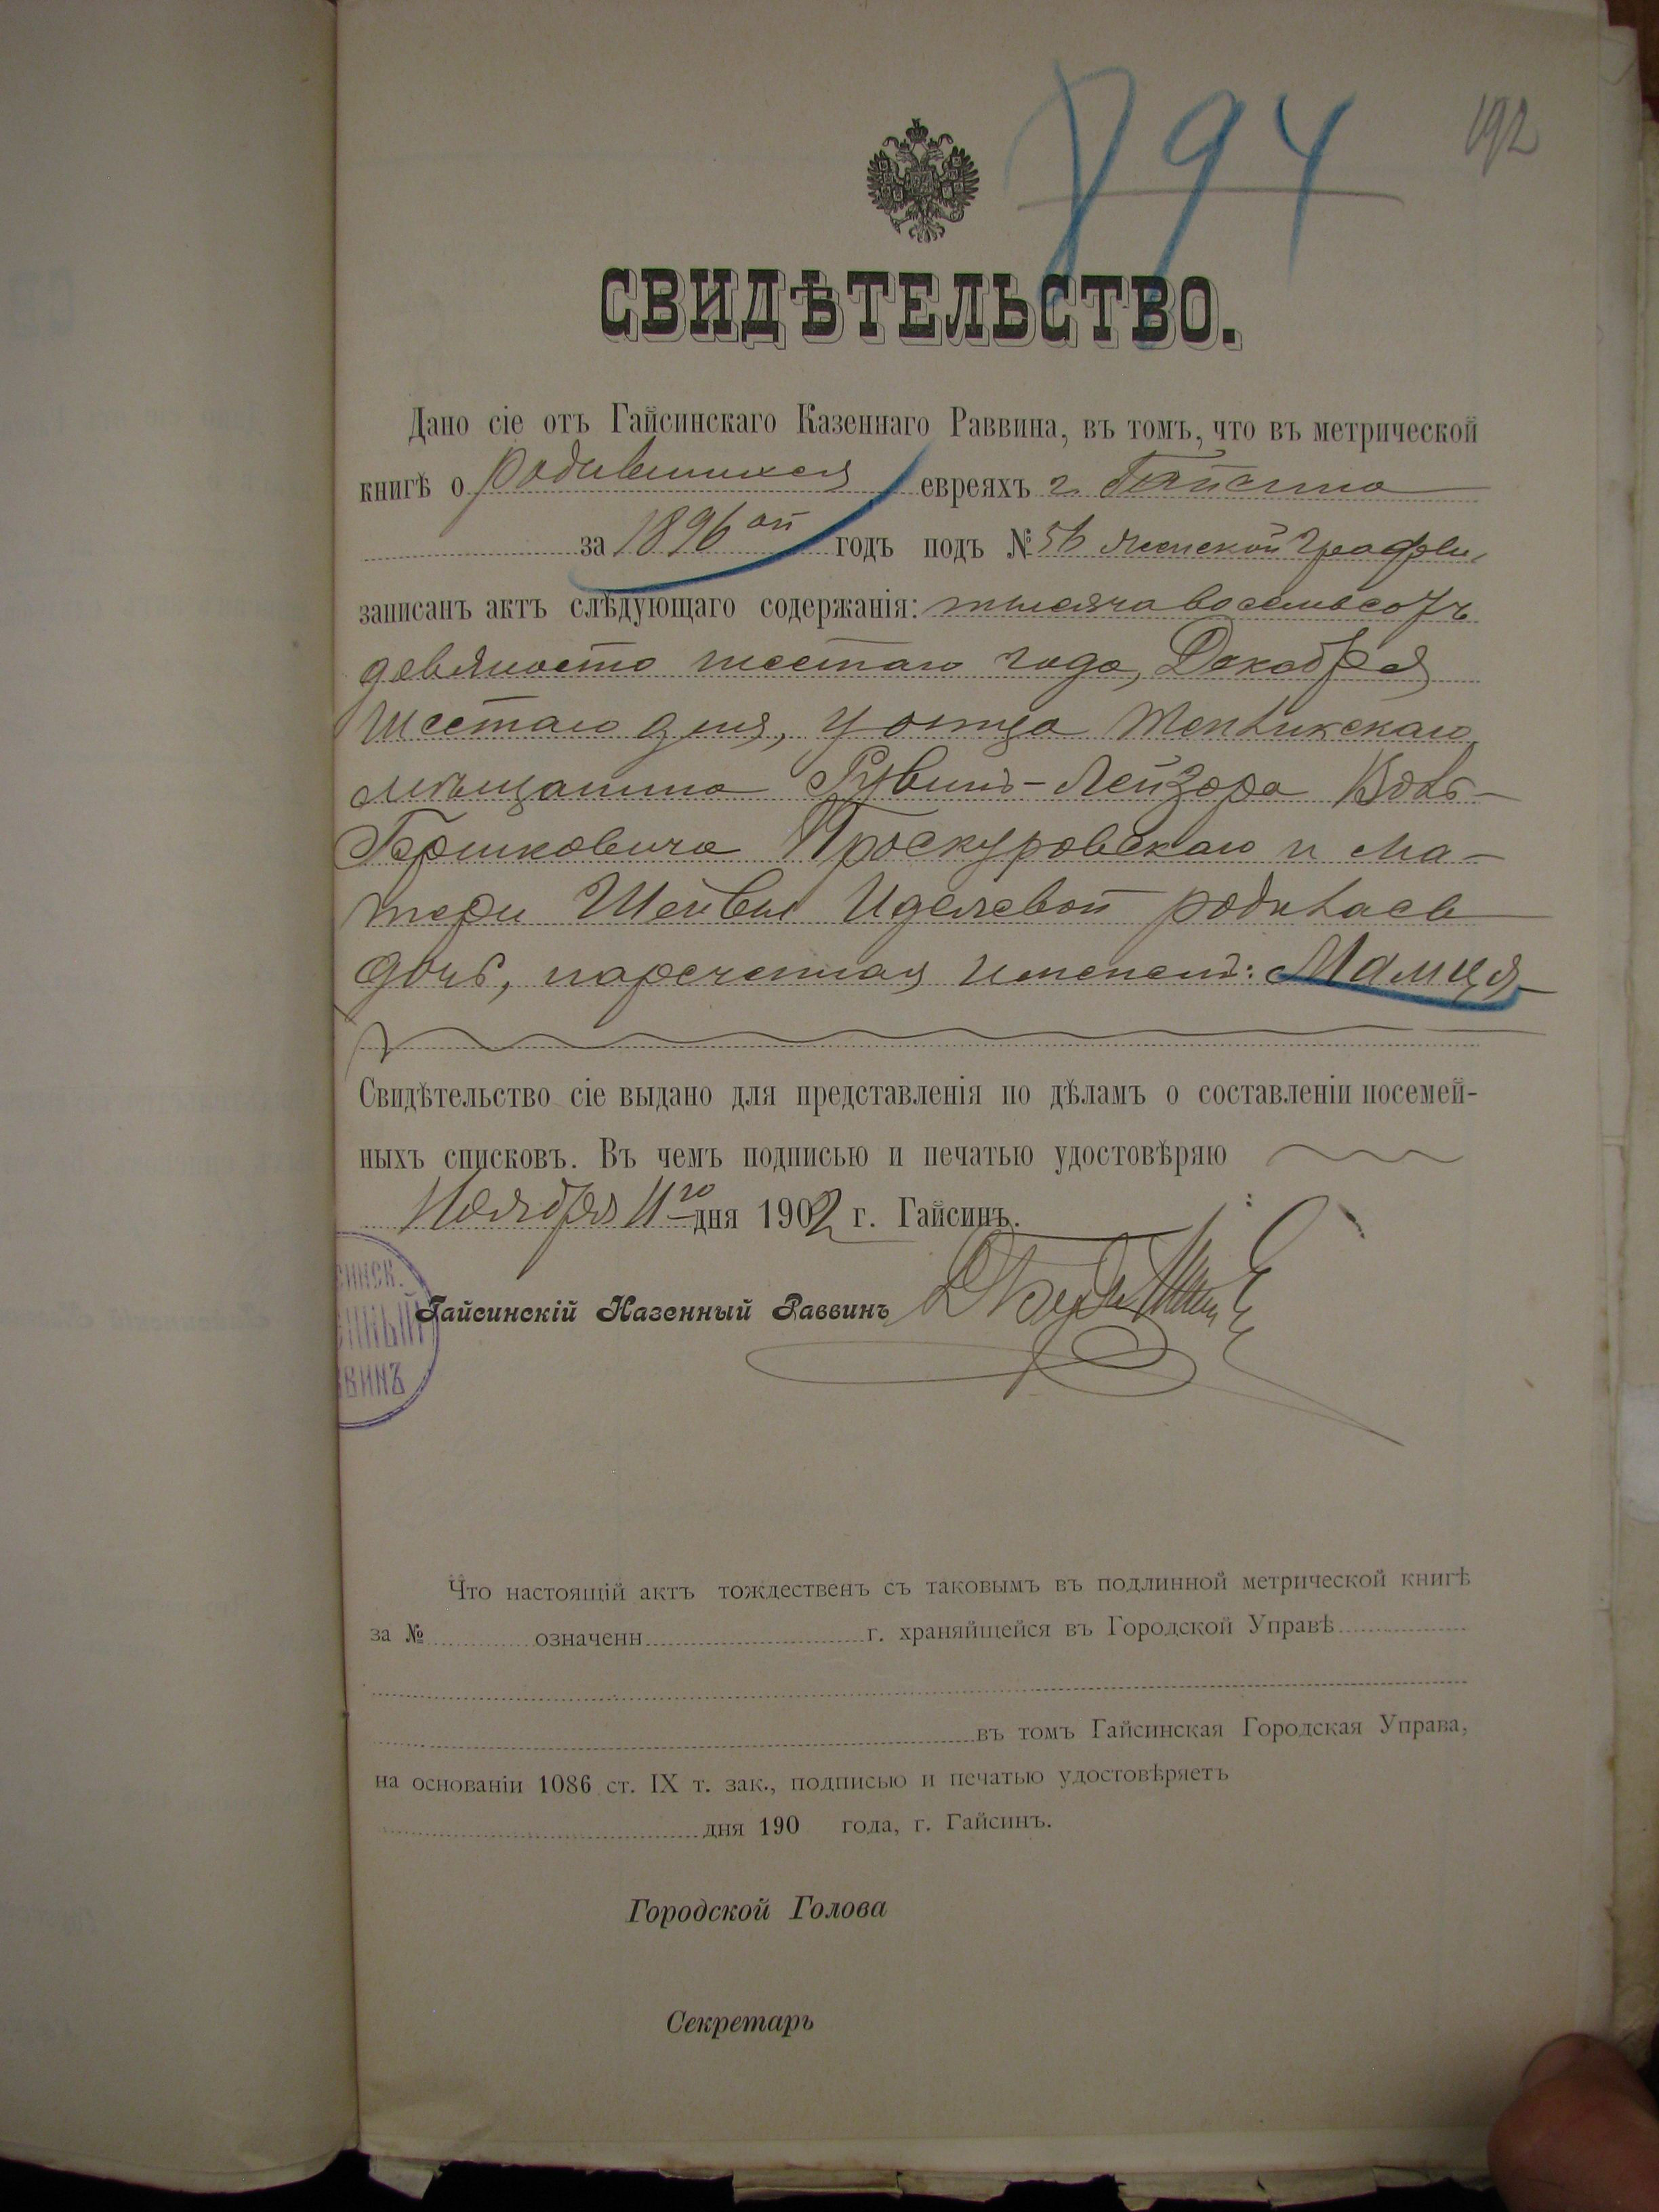 794
192
СВИДѢТЕЛЬСТВО.
Дано сіе отъ Гайсинскаго Казеннаго Раввина, въ томъ, что въ метрической
книгѣ о родившихся евреяхъ г. Гайсина
за 1896 ой годъ подъ № 56 женской графы,
записанъ актъ слѣдующаго содержанія: тысяча восемьсотъ
девяносто шестаго года, Декабря
Шестаго дня, у отца Тепликскаго
мѣщанина Рувинъ-Лейзора Вовъ-
Гершковича Проскуровскаго и ма-
тери Шейвы Иделевой родилась
дочь, нареченная именемъ: Малця
Свидѣтельство сіе выдано для представленія по дѣламъ о составленіи посемей-
ныхъ списковъ. Въ чемъ подписью и печатью удостовѣряю
Ноября 11го дня 1902 г. Гайсинъ.
Гайсинскій Казенный Раввинъ
СИНСК.
ННЫЙ
ВИНЪ
Что настоящій актъ тождественъ съ таковымъ въ подлинной метрической книгѣ
за № означенн г. храняйщейся въ Городской Управѣ
въ томъ Гайсинская Городская Управа,
на основаніи 1086 ст. IX т. зак., подписью и печатью удостовѣряетъ
дня 190 года, г. Гайсинъ.
Городской Голова
Секретарь